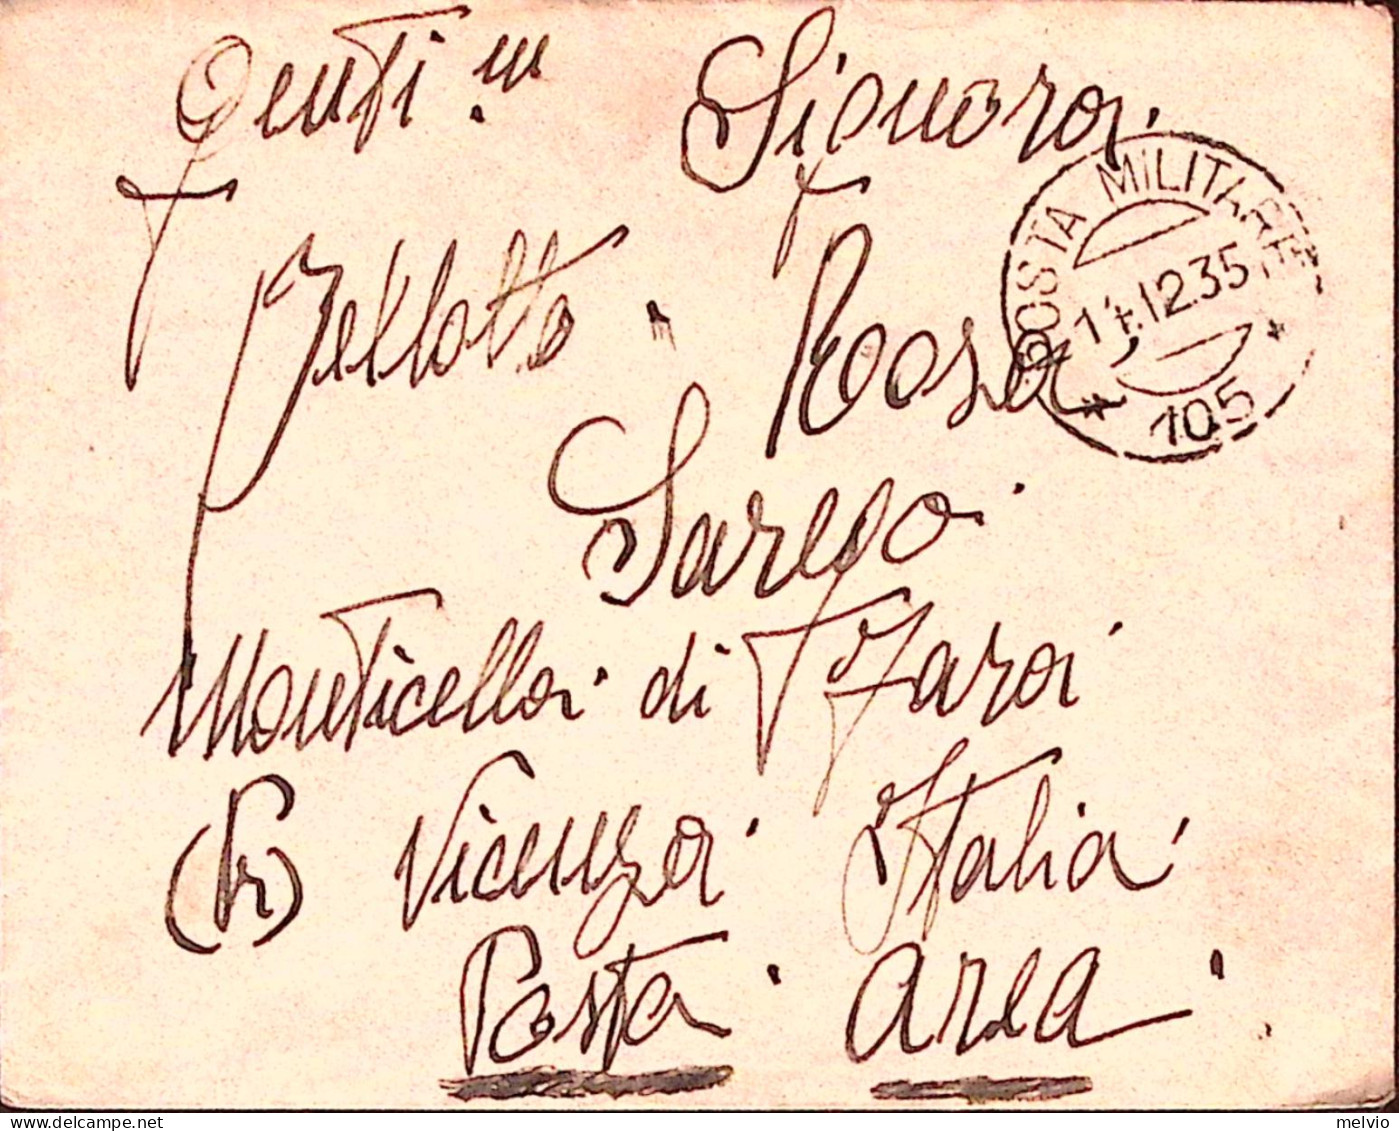 Genti.m Signora.
Bellotto. Rosa
Sarego.
Monticello. di Fara
(Pr) Vicenza. Italia.
Posta. area.
POSTA MILITARE
14.12.35
* 105 *
melvio